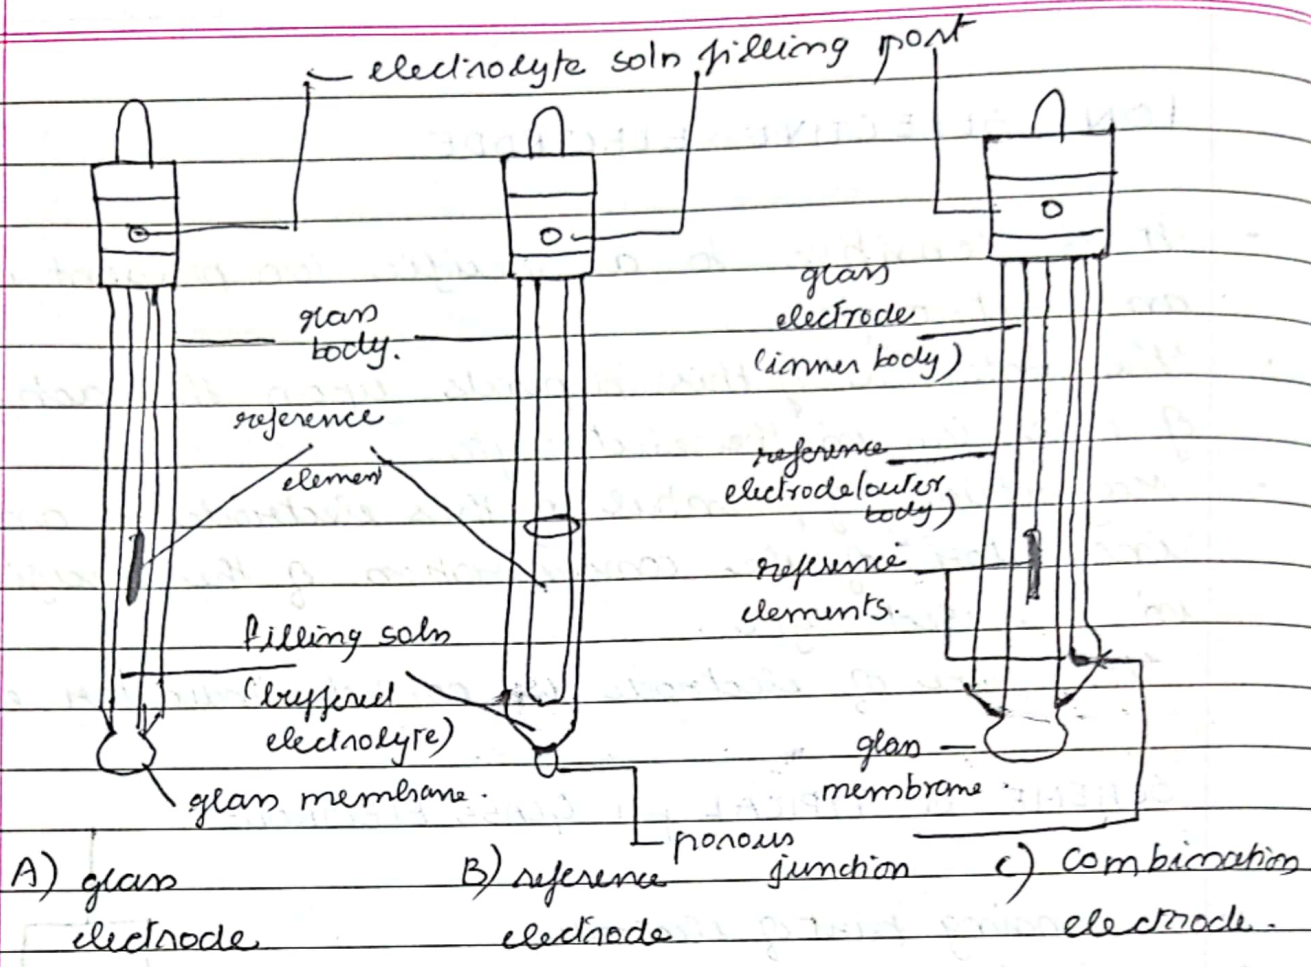 electrolyte soln filling port
glass
body.
reference
element
filling soln
(buffered
electrolyte)
glass membrane.
porous
junction
glass
electrode
(inner body)
reference
electrode(outer
body)
reference
elements.
glass
membrane.
A) glass
electrode
B) reference
electrode
C) combination
electrode.